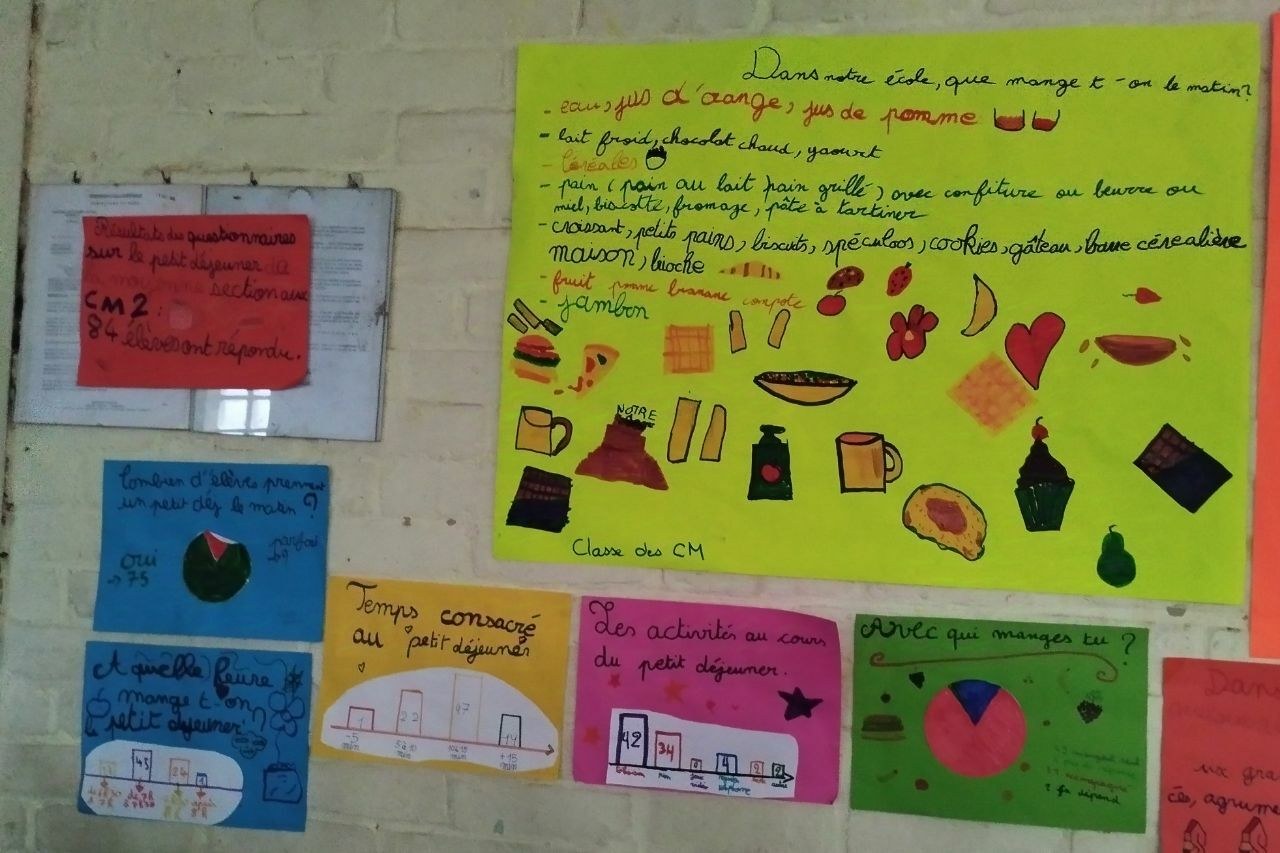 Dans notre école, que mange t-on le matin?
- eau, jus d'orange, jus de pomme
- lait froid, chocolat chaud, yaourt
- céréales
- pain (pain au lait pain grillé) avec confiture ou beurre ou
miel, biscotte, fromage, pâte à tartiner
- croissant, petits pains, biscuits, spéculoos, cookies, gâteau, barre céréalière
maison, brioche
- fruit pomme banane compote
- jambon
NOTRE
Classe des CM
Résultats des questionnaires
sur le petit déjeuner de
la moyenne section aux
CM2 :
84 élèves ont répondu.
Combien d'élèves prennent
un petit déj le matin ?
oui
→ 75
parfois
→ 9
A quelle heure
mange t-on
le petit déjeuner ?
43 24
Temps consacré
au petit déjeuner
22 47 14
-5 5 à 10 +15
min min min min
Les activités au cours
du petit déjeuner.
42 34 4 2 2
rien
téléphone
Avec qui manges tu ?
ça dépend
Dans
ux gra
cés, agrume